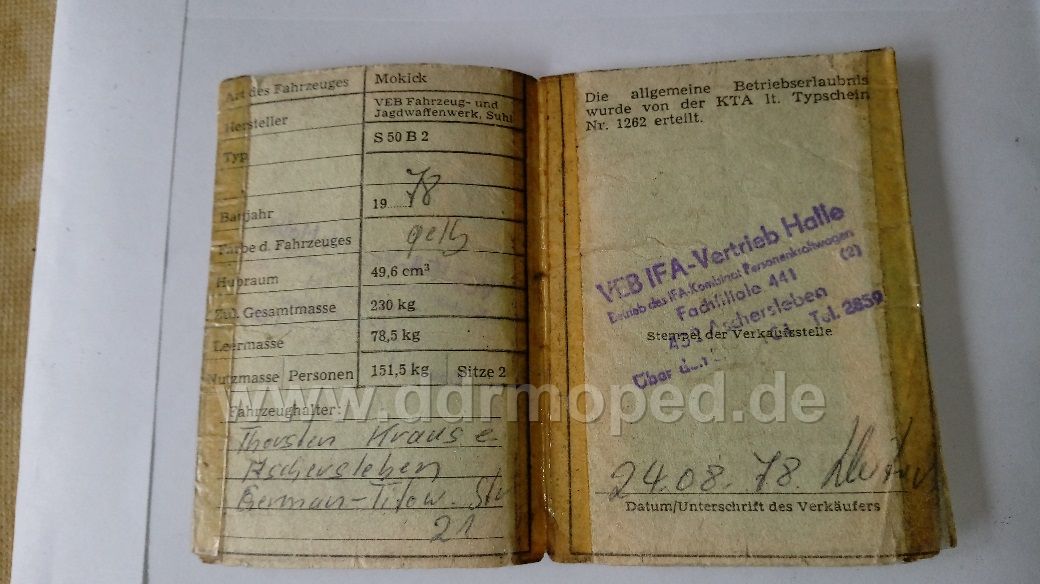 Art des Fahrzeuges Mokick
Hersteller VEB Fahrzeug- und
Jagdwaffenwerk, Suhl
Typ S 50 B 2
Baujahr 19 78
Farbe d. Fahrzeuges gelb
Hubraum 49,6 cm³
Zul. Gesamtmasse 230 kg
Leermasse 78,5 kg
Nutzmasse Personen 151,5 kg Sitze 2
Fahrzeughalter:
Thorsten Krause
Aschersleben
German-Titow-Str
21
Die allgemeine Betriebserlaubnis
wurde von der KTA lt. Typschein
Nr. 1262 erteilt.
VEB IFA-Vertrieb Halle
Betrieb des IFA-Kombinat Personenkraftwagen
Fachfiliale 441 (2)
Aschersleben
Über den Tel. 2859
Stempel der Verkaufsstelle
24.08.78.
Datum/Unterschrift des Verkäufers
www.ddrmoped.de